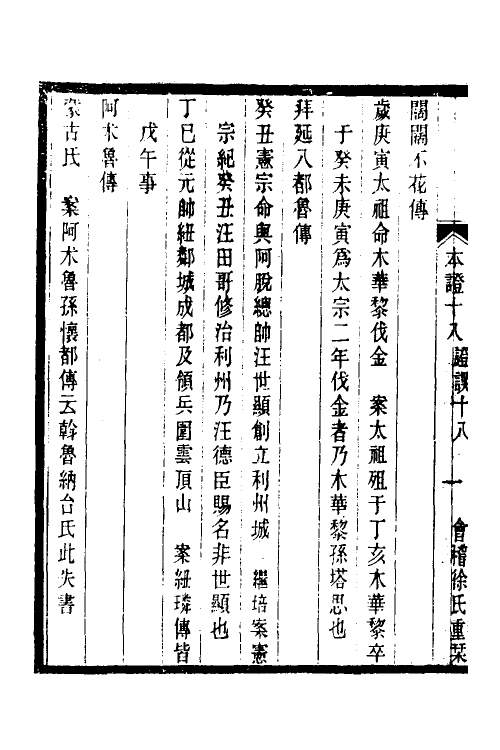 本證十八　證誤十八　一　會稽徐氏重栞
闊闊不花傳
歲庚寅太祖命木華黎伐金　案太祖殂于丁亥木華黎卒
于癸未庚寅爲太宗二年伐金者乃木華黎孫塔思也
拜延八都魯傳
癸丑憲宗命與阿脫總帥汪世顯創立利州城　繼培案憲
宗紀癸丑汪田哥修治利州乃汪德臣賜名非世顯也
丁巳從元帥紐鄰城成都及領兵圍雲頂山　案紐璘傳皆
戊午事
阿朮魯傳
蒙古氏　案阿朮魯孫懷都傳云斡魯納台氏此失書